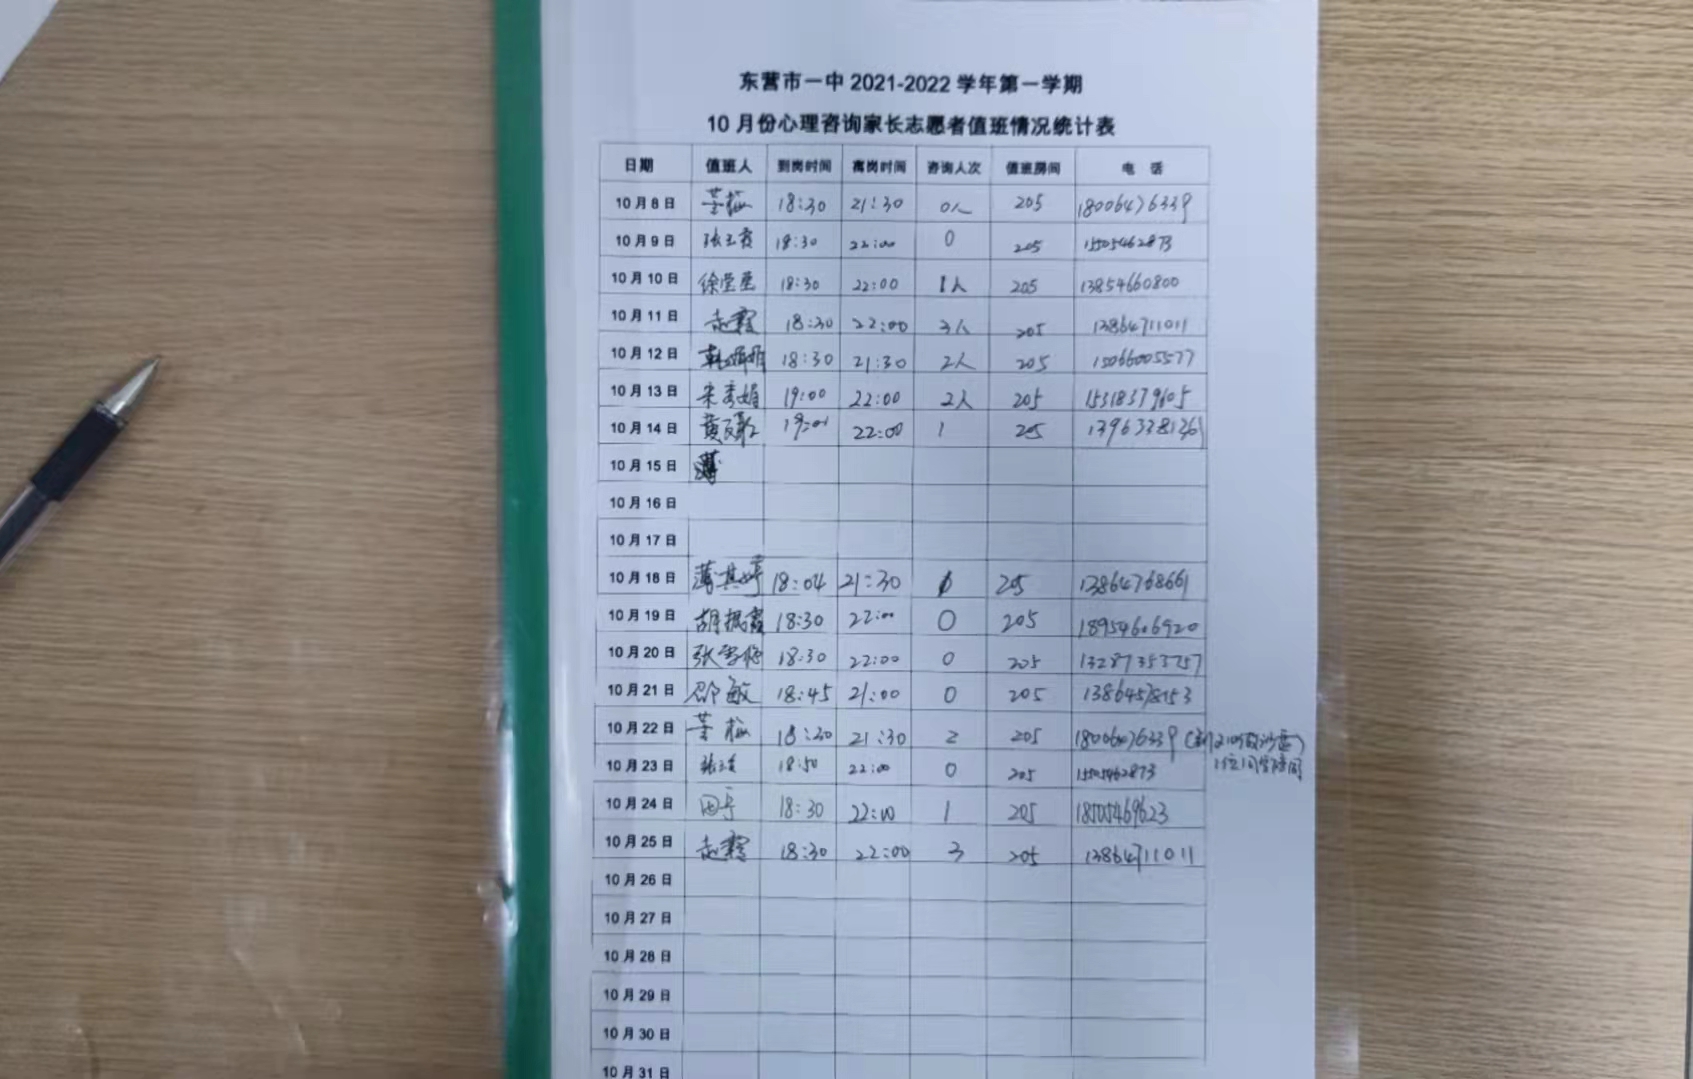 东营市一中 2021-2022 学年第一学期
10 月份心理咨询家长志愿者值班情况统计表
日期 值班人 到岗时间 离岗时间 咨询人次 值班房间 电 话
10 月 8 日 董梅 18:30 21:30 0人 205 18006476339
10 月 9 日 张玉霞 18:30 22:00 0 205 15505462873
10 月 10 日 徐堂星 18:30 22:00 1人 205 13854660800
10 月 11 日 赵霞 18:30 22:00 3人 205 13864711011
10 月 12 日 韩娟娟 18:30 21:30 2人 205 15066005577
10 月 13 日 宋秀娟 19:00 22:00 2人 205 15318379605
10 月 14 日 19:01 22:00 1 205
10 月 15 日
10 月 16 日
10 月 17 日
10 月 18 日 薄其婷 18:04 21:30 0 205 13864768661
10 月 19 日 胡振霞 18:30 22:00 0 205 18954606920
10 月 20 日 18:30 22:00 0 205 13287353757
10 月 21 日 邵敏 18:45 21:00 0 205 13864578153
10 月 22 日 董梅 18:20 21:30 2 205 18006476339
10 月 23 日 18:50 22:00 0 205 15505462873
10 月 24 日 田宁 18:30 22:00 1 205 18505469623
10 月 25 日 赵霞 18:30 22:00 3 205 13864711011
10 月 26 日
10 月 27 日
10 月 28 日
10 月 29 日
10 月 30 日
10 月 31 日